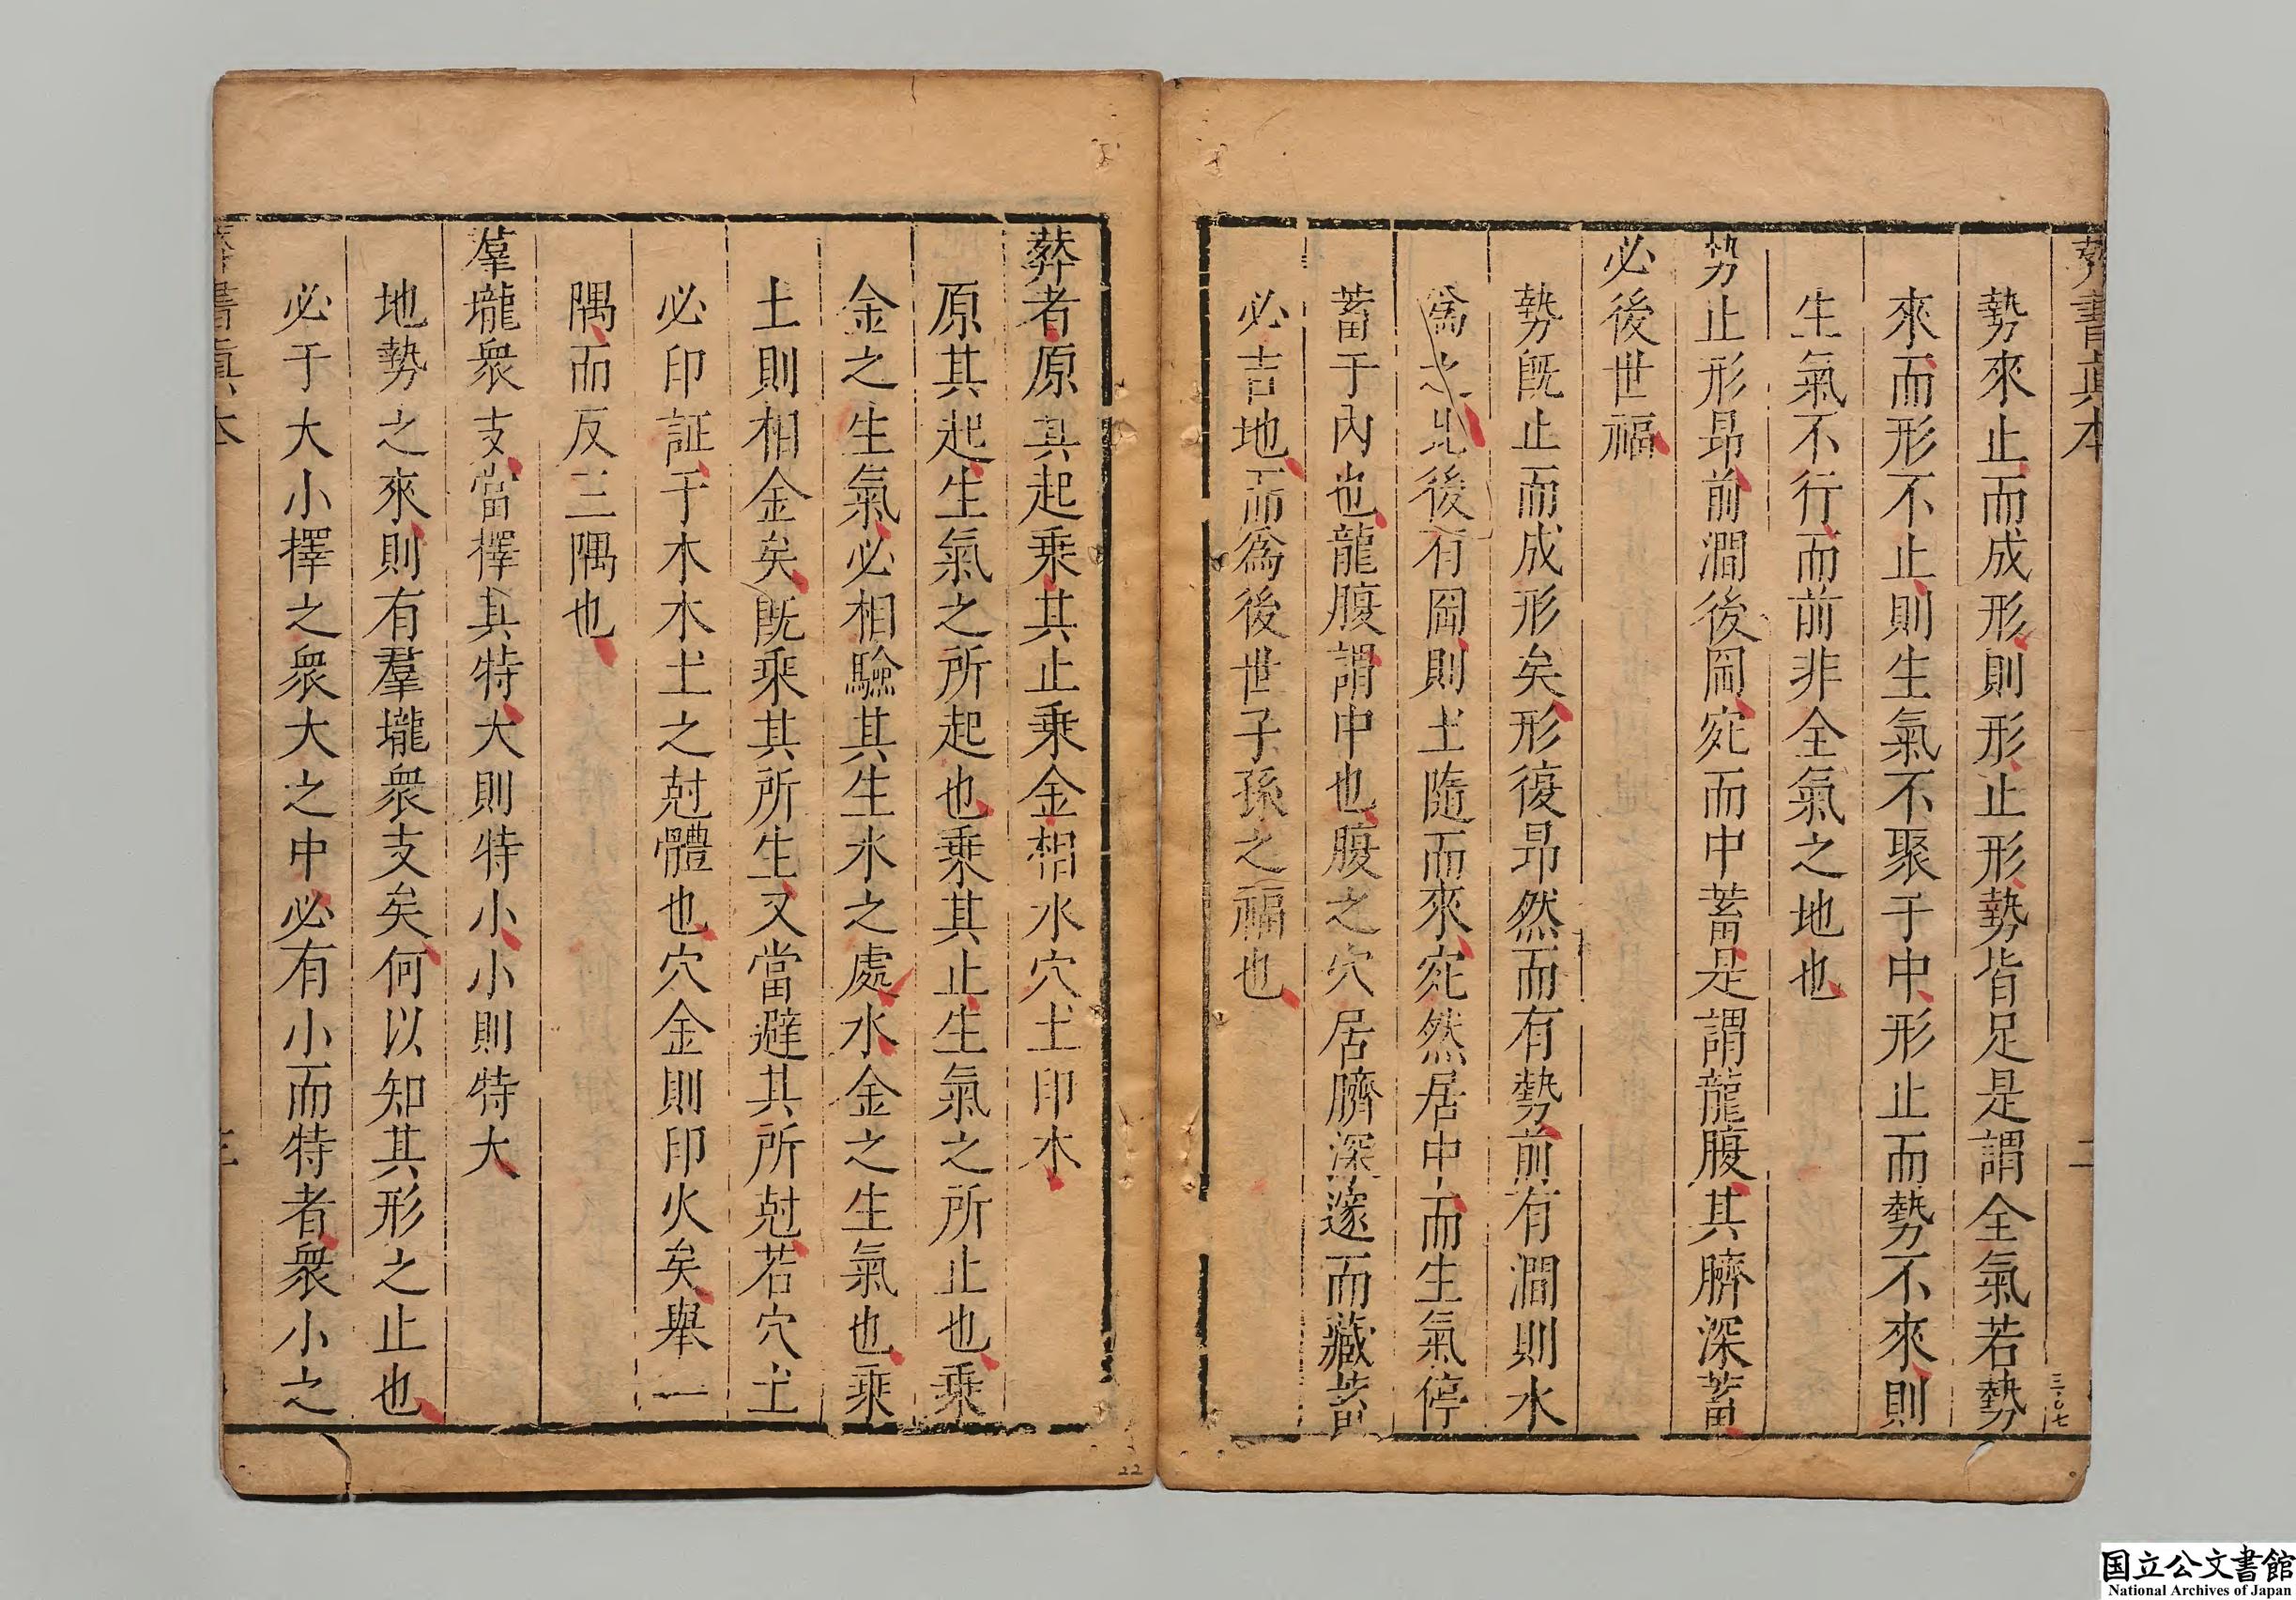 葬書眞本
二
三〇七
勢來止而成形則形止形勢皆足是謂全氣若勢
來而形不止則生氣不聚于中形止而勢不來則
生氣不行而前非全氣之地也
勢止形昻前澗後岡䆓而中蓄是謂龍腹其臍深蓄
必後世福
勢旣止而成形矣形復昻然而有勢前有澗則水
爲之北後有岡則土隨而來䆓然居中而生氣停
蓄于內也龍腹謂中也腹之穴居臍深邃而藏蓄
必吉地而爲後世子孫之福也
葬者原其起乗其止乗金相水穴土印木
原其起生氣之所起也乗其止生氣之所止也乗
金之生氣必相驗其生水之處水金之生氣也乗
土則相金矣旣乗其所生又當避其所尅若穴土
必印証于木木土之尅體也穴金則印火矣舉一
隅而反三隅也
羣壠衆支當擇其特大則特小小則特大
地勢之來則有羣壠衆支矣何以知其形之止也
必于大小擇之衆大之中必有小而特者衆小之
葬書眞本
三
22
国立公文書館
National Archives of Japan